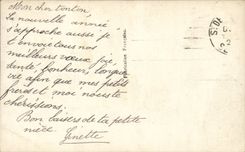 Mon cher tonton
La nouvelle année
s'approche aussi je
t'envoie tous nos
meilleurs vœux joie
santé bonheur, longue
vie afin que mes petits
frères et moi nous te
chérissions.
Bon baisers de ta petite
nièce Ginette